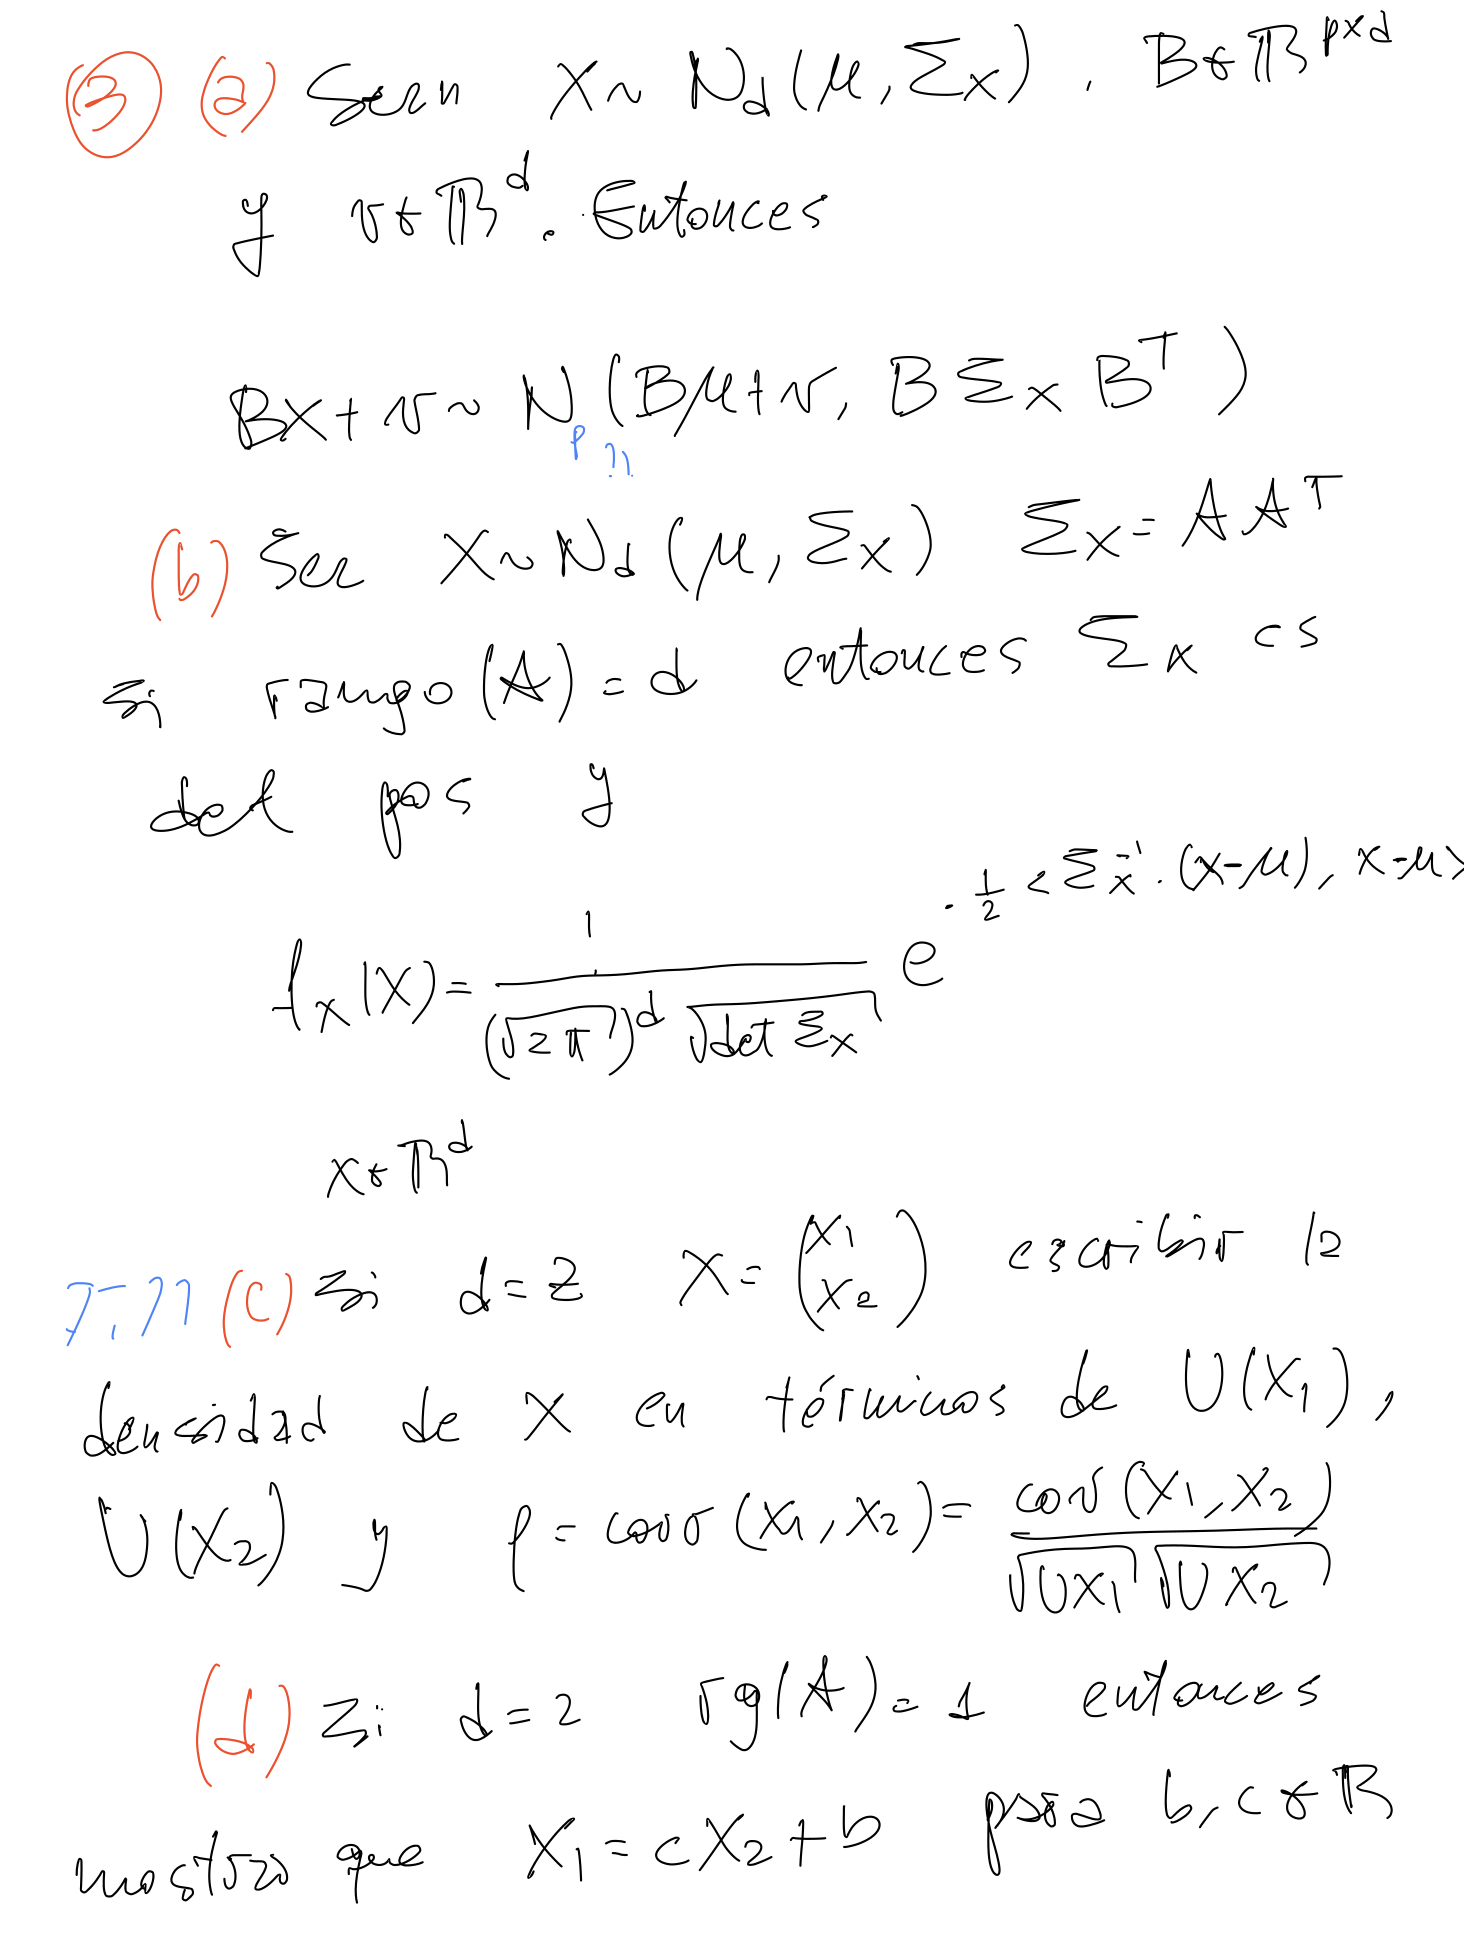 ③ (a) Sean X ~ N_d(μ, Σ_X). B ∈ ℝ^{p×d}
y v ∈ ℝ^d. Entonces
BX + v ~ N_p (Bμ + v, B Σ_X B^T)
(b) Sea X ~ N_d (μ, Σ_X) Σ_X = A A^T
Si rango(A) = d entonces Σ_X es
def pos y
f_X(x) = 1 / ((√2π)^d √det Σ_X) e^{-1/2 <Σ_X^{-1}·(x-μ), x-μ>}
x ∈ ℝ^d
(c) Si d = 2 X = (X_1 X_2) escribir la
densidad de X en términos de V(X_1),
V(X_2) y ρ = corr(X_1, X_2) = cov(X_1, X_2) / (√VX_1 √VX_2)
(d) Si d = 2 rg(A) = 1 entonces
mostrar que X_1 = cX_2 + b para b, c ∈ ℝ